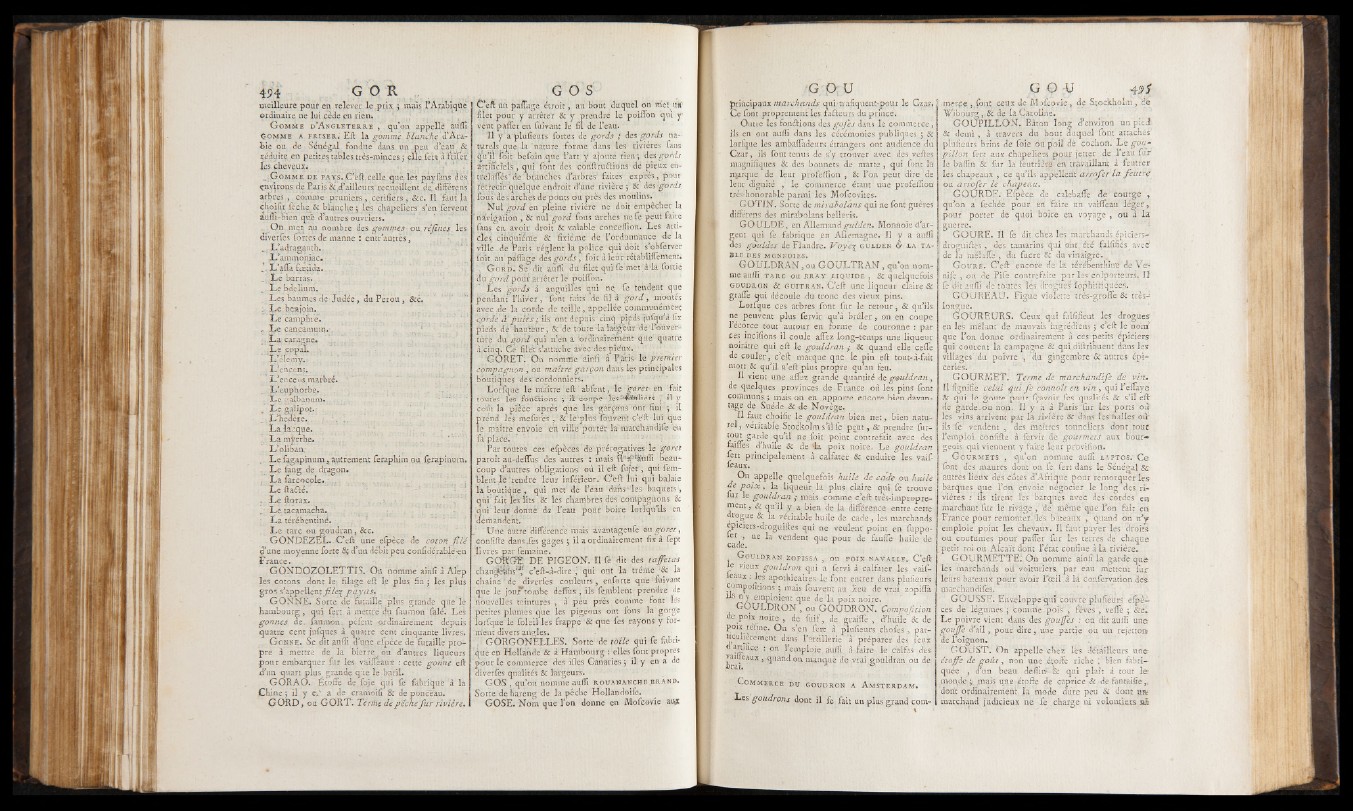 494 GOR
meilleure pour en relever le prix ; mais l'Arabique
ordinaire ne lui cède en rien.
GOMME D'ANGLETERRE , qu'on appelle auſſi
GOMME A FRISER. Eſt la gomme blanche d'Ara-
bie ou de Sénégal fondue dans un peu d'eau & 
réduite en petites tables très-minces ; elle ſert à friſer
les cheveux.
GOMME DE PAYS. C'eſt celle que les payſans des
environs de Paris & d'ailleurs recueillent de différens
arbres , comme pruniers, ceriſiers, &c. Il faut la
choiſir ſèche & blanche ; les chapeliers s'en ſervent
auſſi-bien que d'autres ouvriers.
On met au nombre des gommes ou réſines les
diverſes ſortes de manne : entr'autres ,
L'adraganth.
L'ammoniac.
L'aſſa fœtida.
Le barras.
Le bdelium.
Les baumes de Judée , du Perou , &c.
Le benjoin.
Le camphre.
Le cancamum.
La caragne.
Le copal.
L'élemy.
L'encens.
L'encens marbré.
L'euphorbe.
Le galbanum.
Le galipot.
L'hedere.
La laque.
La myrrhe.
L'oliban.
Le ſagapinum, autrement ſeraphim ou ſerapinum.
Le ſang de dragon.
La ſarcocole.
Le ſtacté.
Le ſtorax.
Le tacamacha.
La térébentine.
Le tarc ou goudran , &c.
GONDEZEL. C'eſt une eſpèce de coton filé
d'une moyenne ſorte & d'un débit peu conſidérable en
France.
GONDOZOLETTIS. On nomme ainſi à Alep
les cotons dont le filage eſt le plus fin ; les plus
gros s'appellent filez payas.
GONNE. Sorte de futaille plus grande que le
hambourg , qui ſert à mettre du ſaumon ſalé. Les
gonnes de ſaumon peſent ordinairement depuis
quatre cent juſques à quatre cent cinquante livres.
GONNE. Se dit auſſi d'une eſpèce de futaille pro-
pre à mettre de la bierre ou d'autres liqueurs
pour embarquer ſur les vaiſſeaux : cette gonne eſt
d'un quart plus grande que le baril.
GORAO. Étoffe de ſoie qui ſe fabrique à la
Chine ; il y en a de cramoiſi & de ponceau.
GORD , ou GORT. Terme de pêche ſur rivière.
GOS
C'eſt un paſſage étroit , au bout duquel on met un
filet pour y arrêter & y prendre le poiſſon qui y
vent paſſer en ſuivant le fil de l'eau.
Il y a pluſieurs ſortes de gords ; des gords na-
turels que la nature forme dans les rivières ſans
qu'il ſoit beſoin que l'art y ajoute rien ; des gords
artificiels , qui ſont des conſtructions de pieux en-
treláſſés de branches d'arbres faites exprès, pour
rétrécir quelque endroit d'une rivière ; & des gords
ſous des arches de ponts ou près des moulins.
Nul gord en pleine rivière ne doit empêcher la
navigation , & nul gord ſous arches ne ſe peut faire
ſans en avoir droit & valable conceſſion. Les arti-
cles cinquième & ſixième de l'ordonnance de la
ville de Paris règlent la police qui doit s'obſerver
ſoit au paſſage des gords , ſoit à leur rétabliſſement.
GORD. Se dit auſſi du filet qui ſe met à la ſortie
du gord pour arrêter le poiſſon.
Les gords à anguilles qui ne ſe tendent que
pendant l'hiver , ſont faits de fil à gord , montés
avec de la corde de teille, appellée communément
corde à puits ; ils ont depuis cinq pieds juſqu'à ſix
pieds de hauteur , & de toute la largeur de l'ouver-
ture du gord qui n'en a ordinairement que quatre
à cinq. Ce filet s'attache avec des pieux.
GORET. On nomme ainſi à Paris le premier
compagnon , ou maître garçon dans les principales
boutiques des cordonniers.
Lorſque le maître eſt abſent , le goret en fait
toutes les fonctions ; il coupe les ſouliers ; il y
coût la pièce après que les garçons ont fini ; il
prend les meſures , & le plus ſouvent c'eſt lui que
le maître envoie en ville porter la marchandiſe en
ſa place.
Par toutes ces eſpèces de prérogatives le goret
paroît au-deſſus des autres : mais il a auſſi beau-
coup d'autres obligations où il eſt ſujet , qui ſem-
blent le rendre leur inférieur. C'eſt lui qui balaie
la boutique , qui met de l'eau dans les baquets ,
qui fait les lits & les chambres des compagnons &
qui leur donne de l'eau pour boire lorſqu'ils en
demandent.
Une autre différence mais avantageuſe au goret ,
conſiſte dans ſes gages ; il a ordinairement ſix à ſept
livres par ſemaine.
GORGE DE PIGEON. Il ſe dit des taffetas
changeans c'eſt-à-dire , qui ont la trême & la
chaîne de diverſes couleurs , enſorte que ſuivant
que le jour tombe deſſus , ils ſemblent prendre de
nouvelles teintures , à peu près comme font les
petites plumes que les pigeons ont ſous la gorge
lorſque le ſoleil les frappe & que ſes rayons y for-
ment divers angles.
GORGONELLES. Sorte de toile qui ſe fabri-
que en Hollande & à Hambourg : elles ſont propres
pour le commerce des iſles Canaries ; il y en a de
diverſes qualités & largeurs.
GOS , qu'on nomme auſſi ROUANANCHE BRAND.
Sorte de hareng de la pêche Hollandoiſe.
GOSE. Nom que l'on donne en Moſcovie aux
GOU
principaux marchands qui trafiquent pour le Czar.
Ce ſont proprement les facteurs du prince.
Outre les fonctions des goſes dans le commerce ,
ils en ont auſſi dans les cérémonies publiques ; &
lorſque les ambaſſadeurs étrangers ont audience du
Czar , ils ſont tenus de s'y trouver avec des veſtes
magnifiques & des bonnets de marte , qui ſont la
marque de leur profeſſion , & l'on peut dire de
leur dignité , le commerce étant une profeſſion
très-honorable parmi les Moſcovites.
GOTIN. Sorte de mirabolans qui ne ſont guères
différens des mirabolans belleris.
GOULDE , en Allemand gulden. Monnoie d'ar-
gent qui ſe fabrique en Allemagne. Il y a auſſi
des gouldes de Flandre. Voyez GULDER & LA TA-
BLE DES MONNOIES.
GOULDRAN , ou GOULTRAN , qu'on nom-
me auſſi TARC ou BRAY LIQUIDE , & quelquefois
GOUDRON & GUITRAN. C'eſt une liqueur claire &
graſſe qui découle du tronc des vieux pins.
Lorſque ces arbres ſont ſur le retour , & qu'ils
ne peuvent plus ſervir qu'à brûler , on en coupe
l'écorce tout autour en forme de couronne : par
ces inciſions il coule aſſez long-temps une liqueur
noirâtre qui eſt le gouldran ; & quand elle ceſſe
de couler , c'eſt marque que le pin eſt tout-à-fait
mort & qu'il n'eſt plus propre qu'au feu.
Il vient une aſſez grande quantité de gouldran ,
de quelques provinces de France où les pins ſont
communs ; mais on en apporte encore bien davan-
tage de Suède & de Novège.
Il faut choiſir le gouldran bien net , bien natu-
rel , véritable Stockolm s'il ſe peut , & prendre ſur-
tout garde qu'il ne ſoit point contrefait avec des
faiſſes d'huile & de la poix noire. Le gouldran
ſert principalement à calfater & enduire les vaiſ-
ſeaux.
On appelle quelquefois huile de cade ou huile
de poix , la liqueur la plus claire qui ſe trouve
ſur le gouldran ; mais comme c'eſt très-impropre-
ment , & qu'il y a bien de la différence entre cette
drogue & la véritable huile de cade , les marchands
épiciers-droguiſtes qui ne veulent point en ſuppo-
ſer , ne la vendent que pour de fauſſe huile de
cade.
GOULDRAN ZOPISSA , ou POIX NAVALLE. C'eſt
le vieux gouldron qui a ſervi à calfater les vaiſ-
ſeaux : les apothicaires le font entrer dans pluſieurs
compoſitions ; mais ſouvent au lieu de vrai zopiſſa
ils n'y emploient que de la poix noire.
GOULDRON , ou GOUDRON. Compoſition
de poix noire , de ſuif , de graiſſe , d'huile & de
poix réſine. On s'en ſert à pluſieurs choſes , par-
ticulièrement dans l'artillerie à préparer des feux
d'artifice : on l'emploie auſſi à faire le calfas des
vaiſſeaux , quand on manque de vrai gouldran ou de
brai.
COMMERCE DU GOUDRON A AMSTERDAM.
Les goudrons dont il ſe fait un plus grand com-
GOU 495
merce , ſont ceux de Moſcovie , de Stockholm , de
Wibourg , & de la Caroline.
GOUPILLON. Bâton long d'environ un pied
& demi , à travers du bout duquel ſont attachés
pluſieurs brins de ſoie ou poil de cochon. Le gou-
pillon ſert aux chapeliers pour jetter de l'eau ſur
le baſſin & ſur la feutrière en travaillant à feutrer
les chapeaux , ce qu'ils appellent arroſer la feutre
ou arroſer le chapeau.
GOURDE. Eſpèce de calebaſſe de courge ,
qu'on a ſechée pour en faire un vaiſſeau léger ,
pour porter de quoi boire en voyage , ou à la
guerre.
GOURE. Il ſe dit chez les marchands épiciers-
droguiſtes , des tamarins qui ont été falſifiés avec
de la mélaſſe , du ſucre & du vinaigre.
GOURE. C'eſt encore de la térébenthine de Ve-
niſe , ou de Piſe contrefaite par les colporteurs. Il
ſe dit auſſi de toutes les drogues ſophiſtiquées.
GOUREAU. Figue violette très-groſſe & très-
longue.
GOUREURS. Ceux qui falſifient les drogues
en les mêlant de mauvais ingrédiens ; c'eſt le nom
que l'on donne ordinairement à ces petits épiciers
qui courent la campagne & qui diſtribuent dans les
villages du poivre , du gingembre & autres épi-
ceries.
GOURMET. Terme de marchandiſe de vin.
Il ſignifie celui qui ſe connoît en vin , qui l'eſſaye
& qui le goute pour ſçavoir ſes qualités & s'il eſt
de garde ou non. Il y a à Paris ſur les ports où
les vins arrivent par la rivière & dans les halles où
ils ſe vendent , des maîtres tonneliers dont tout
l'emploi conſiſte à ſervir de gourmets aux bour-
geois qui viennent y faire leur proviſion.
GOURMETS , qu'on nomme auſſi LAPTOS. Ce
ſont des maures dont on ſe ſert dans le Sénégal &
autres lieux des côtes d'Afrique pour remorquer les
barques que l'on envoie négocier le long des ri-
vières : ils tirent les barques avec des cordes en
marchant ſur le rivage , de même que l'on fait en
France pour remonter les bateaux , quand on n'y
emploie point les chevaux. Il faut payer les droits
ou coutumes pour paſſer ſur les terres de chaque
petit roi ou Alcair dont l'état confine à la rivière.
GOURMETTE. On nomme ainſi la garde que
les marchands où voituriers par eau mettent ſur
leurs bateaux pour avoir l'œil à la conſervation des
marchandiſes.
GOUSSE. Enveloppe qui couvre pluſieurs eſpè-
ces de légumes ; comme pois , fèves , veſſe , &c.
Le poivre vient dans des gouſſes : on dit auſſi une
gouſſe d'ail , pour dire , une partie ou un rejetton
de l'oignon.
GOUST. On appelle chez les détailleurs une
étoffe de goût , non une étoffe riche , bien fabri-
quée , d'un beau deſſin & qui plaît à tout le
monde ; mais une étoffe de caprice & de fantaiſie,
dont ordinairement la mode dure peu & dont un
marchand judicieux ne ſe charge ni volontiers ni